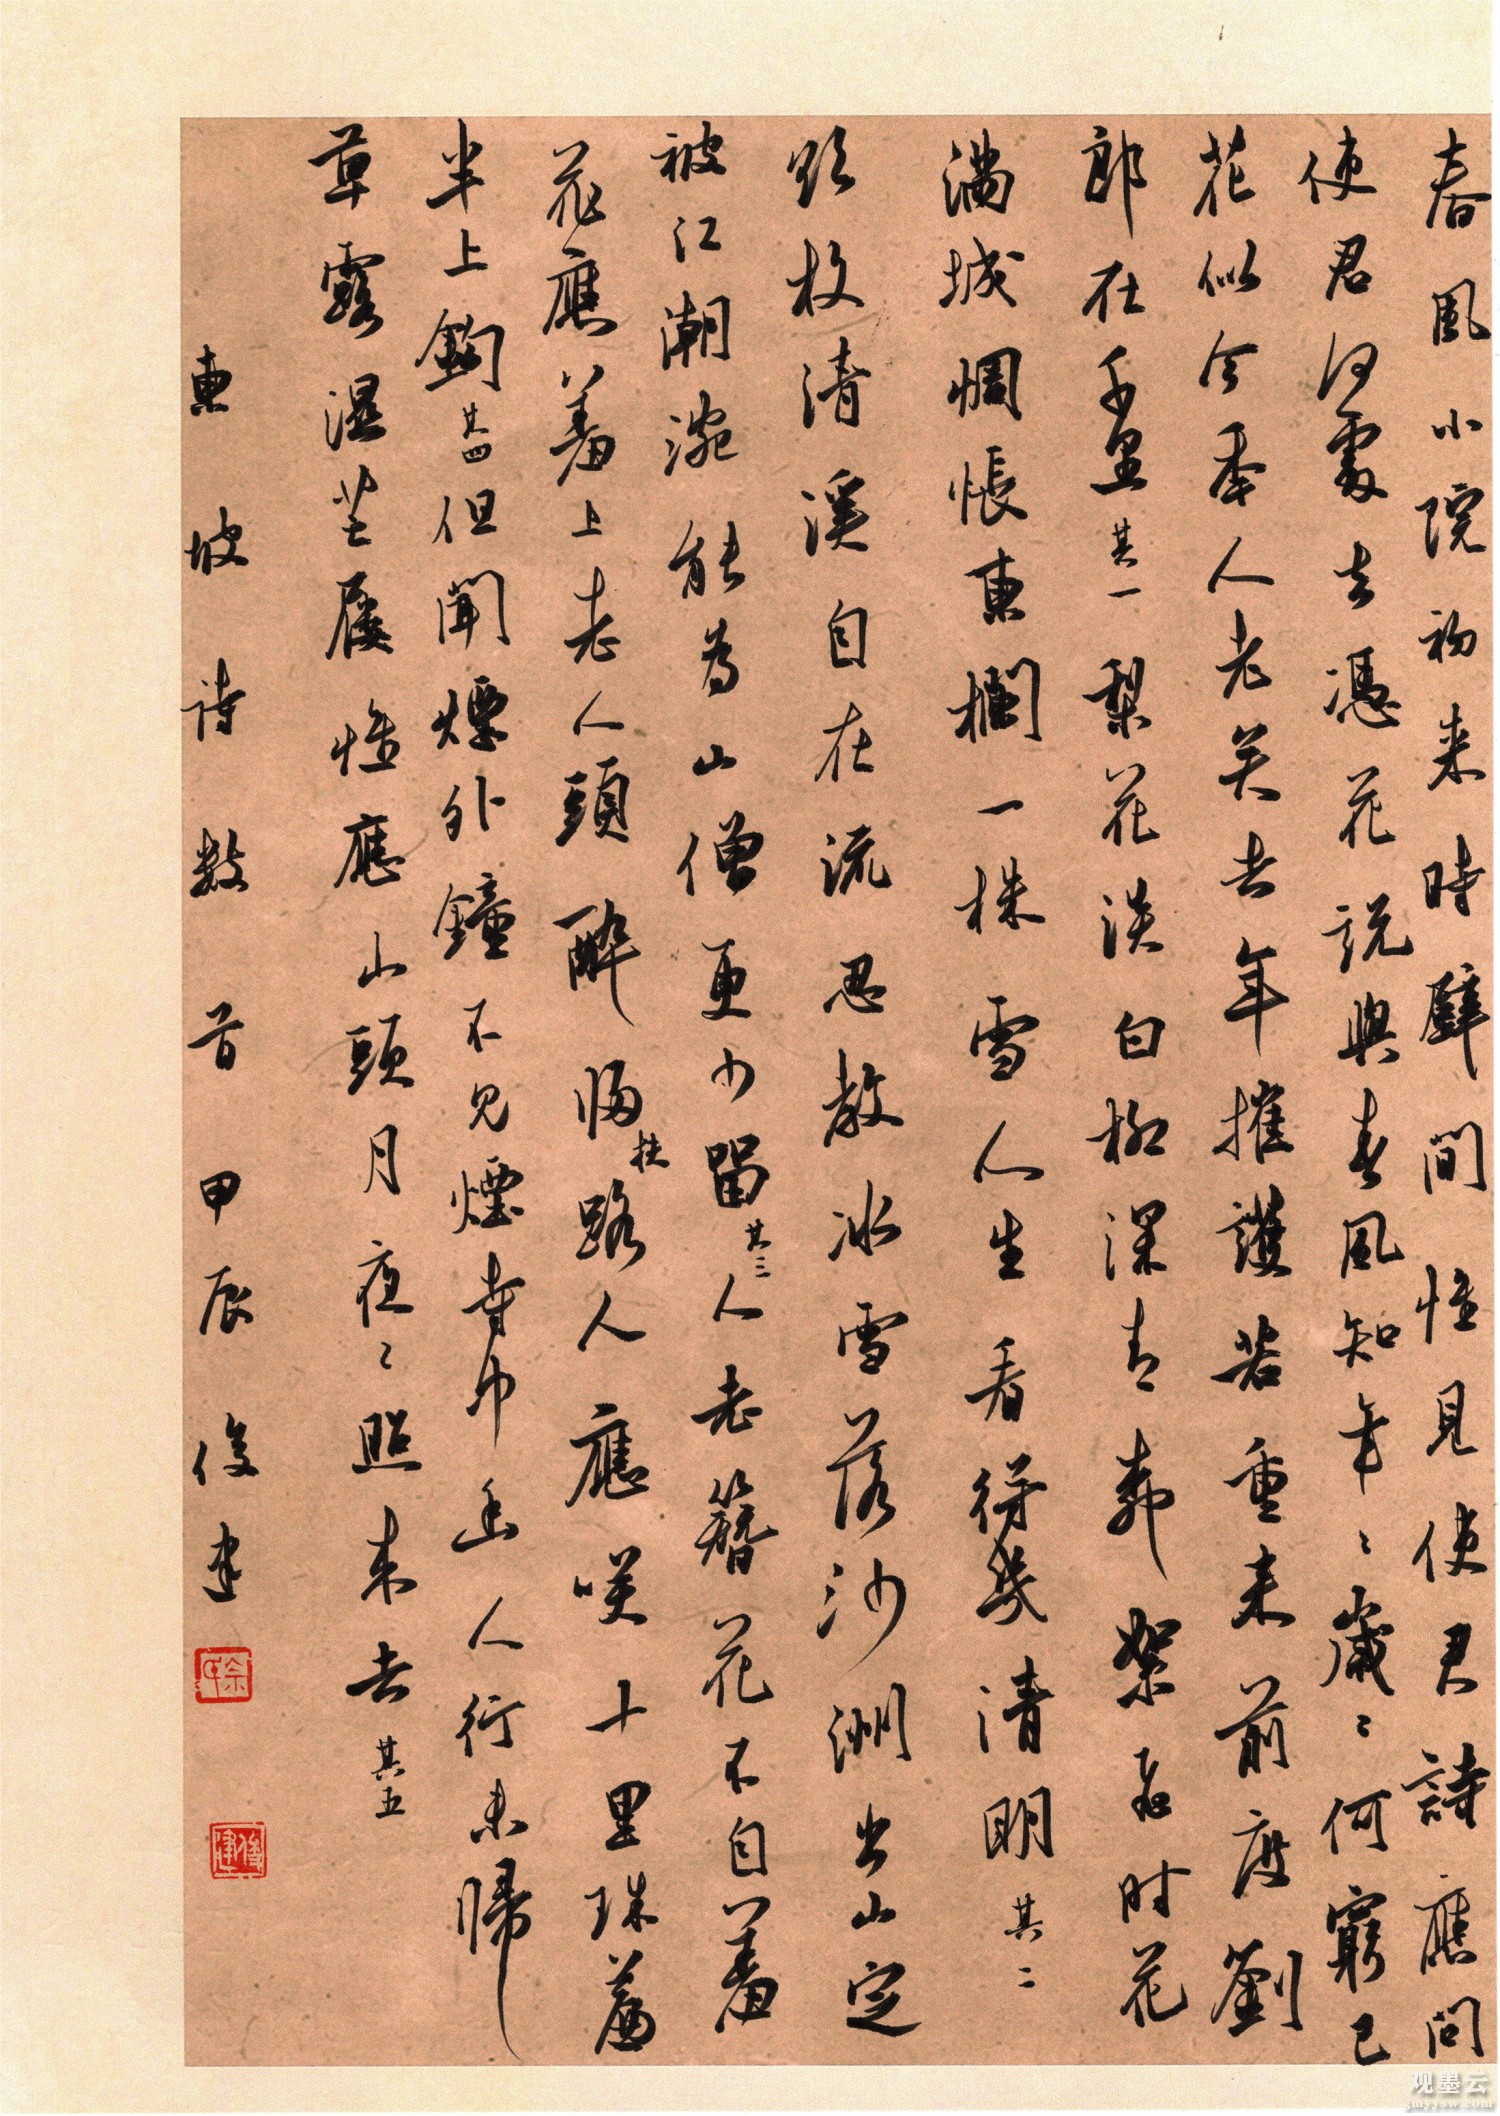 春風小院初来時壁間惟見使君詩應問
使君何處去憑花說與春風知年〻歲〻何窮已
花似今年人老矣去年摧護若重来前度劉
郎在千里其一梨花淡白柳深青柳絮飛时花
滿城惆悵東欄一株雪人生看得幾清明其二
到枚清溪自在流忍教冰雪落沙洲出山定
被江潮涴能為山僧更少留其三人老簪花不自羞
花應羞上老人頭醉歸扶路人應咲十里珠簾
半上鉤其四但聞煙外鐘不見煙寺中幽人行未歸
草露濕芒屨惟應山頭月夜〻照来去其五
東坡詩数首甲辰俊建
徐
俊建
观墨云
gmyysw.com